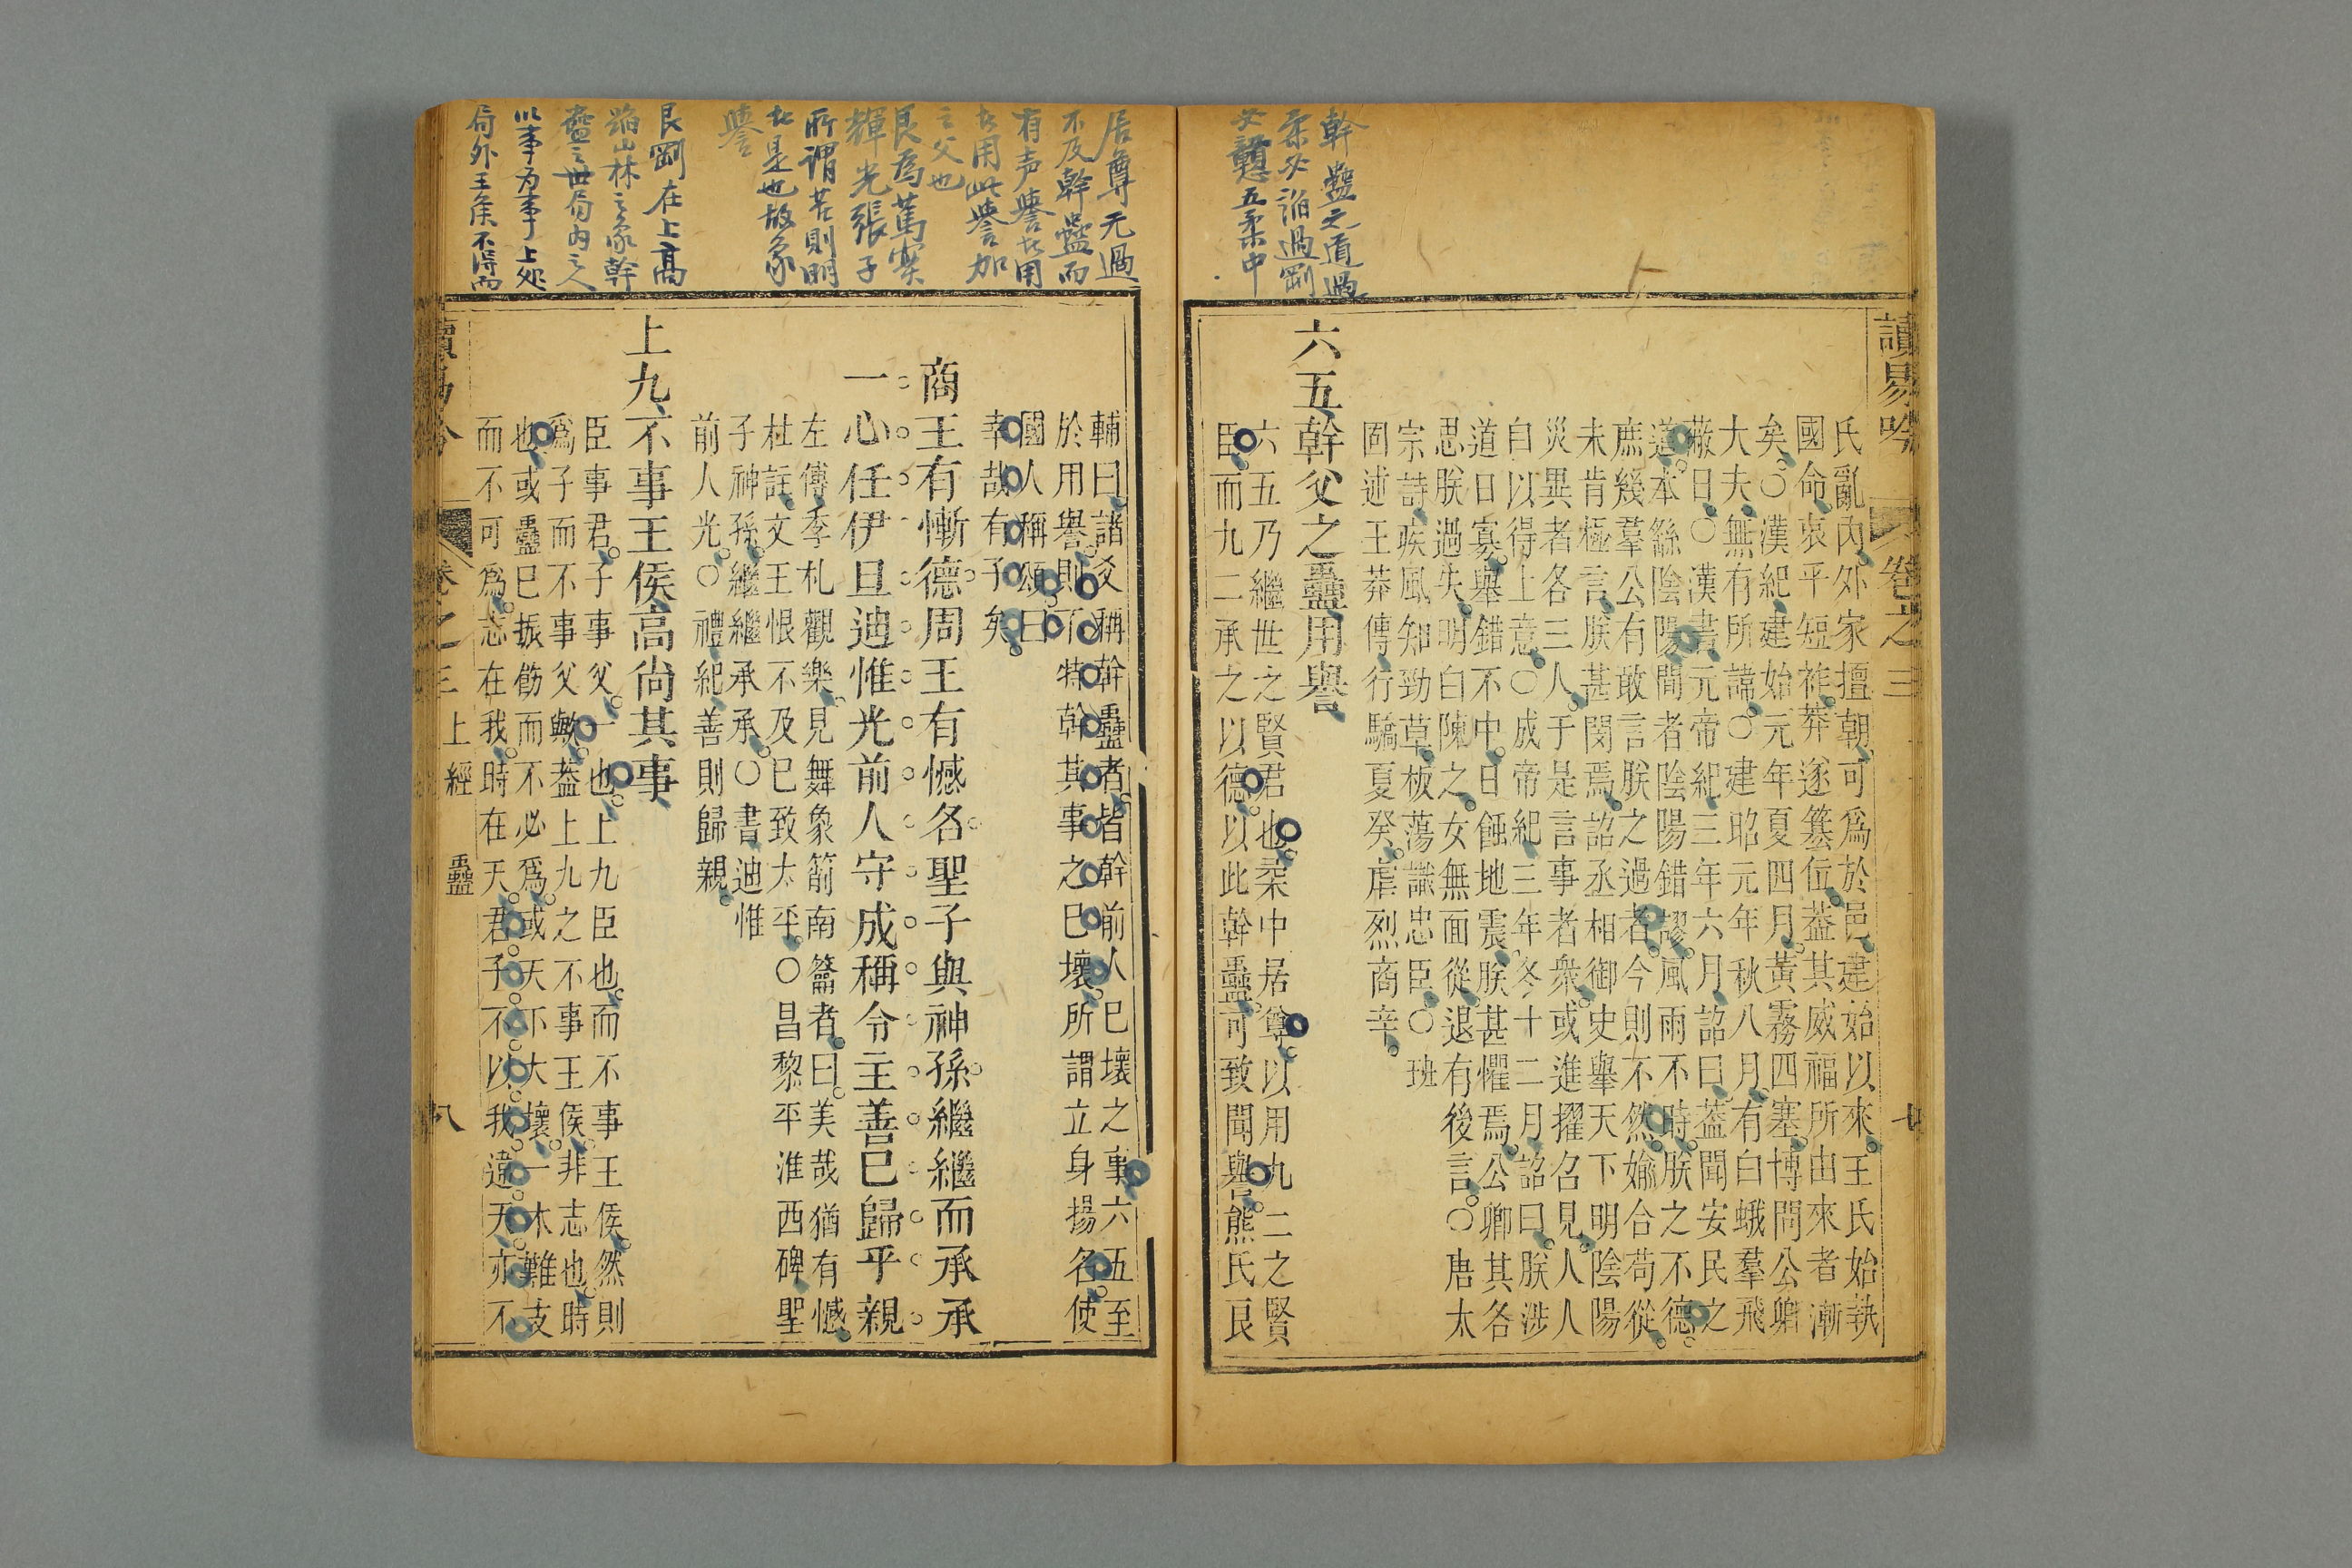 讀易吟 卷之三 七
氏亂內外家擅朝可爲於邑建始以來王氏始執
國命哀平短祚莽遂簒位葢其威福所由來者漸
矣○漢紀建始元年夏四月黃霧四塞博問公卿
大夫無有所諱○建昭元年秋八月有白蛾羣飛
蔽日○漢書元帝紀三年六月詔曰葢聞安民之
道本繇陰陽間者陰陽錯謬風雨不時朕之不德
庶幾羣公有敢言朕之過者今則不然媮合苟從
未肯極言朕甚閔焉詔丞相御史舉天下明陰陽
災異者各三人于是言事者衆或進擢召見人人
自以得上意○成帝紀三年冬十二月詔曰朕涉
道日寡舉錯不中日蝕地震朕甚懼焉公卿其各
思朕過失明白陳之女無面從退有後言○唐太
宗詩疾風知勁草板蕩識忠臣○班
固述王莽傳行驕夏癸虐烈商辛
六五幹父之蠱用譽
六五乃繼世之賢君也柔中居尊以用九二之賢
臣而九二承之以德以此幹蠱可致聞譽熊氏良
幹蠱之道過
柔必滔過剛
必 五柔中
輔曰諸爻稱幹蠱者皆幹前人已壞之事六五至
於用譽則不特幹其事之已壞所謂立身揚名使
國人稱頌曰
幸哉有子矣
商王有慚德周王有憾名聖子與神孫繼繼而承承
一心任伊旦迪惟光前人守成稱令主善已歸乎親
左傳季札觀樂見舞象箾南籥者曰美哉猶有憾
杜註文王恨不及已致太平○昌黎平淮西碑聖
子神孫繼繼承承○書迪惟
前人光○禮紀善則歸親
上九不事王侯高尚其事
臣事君子事父一也上九臣也而不事王侯然則
爲子而不事父歟葢上九之不事王侯非志也時
也或蠱已振飭而不必爲或天下大壞一木難支
而不可爲志在我時在天君子不以我違天亦不
居尊元過
不及幹蠱而
有声譽㐲用
㐲用此譽加
之父也
艮爲萬實
輝光張子
所謂若則明
㐲是也故象
譽
艮剛在上高
蹈山林之象幹
蠱之世局內之人
以事为事上処
局外王矦不得而
讀易吟 卷之三 上經 蠱 八